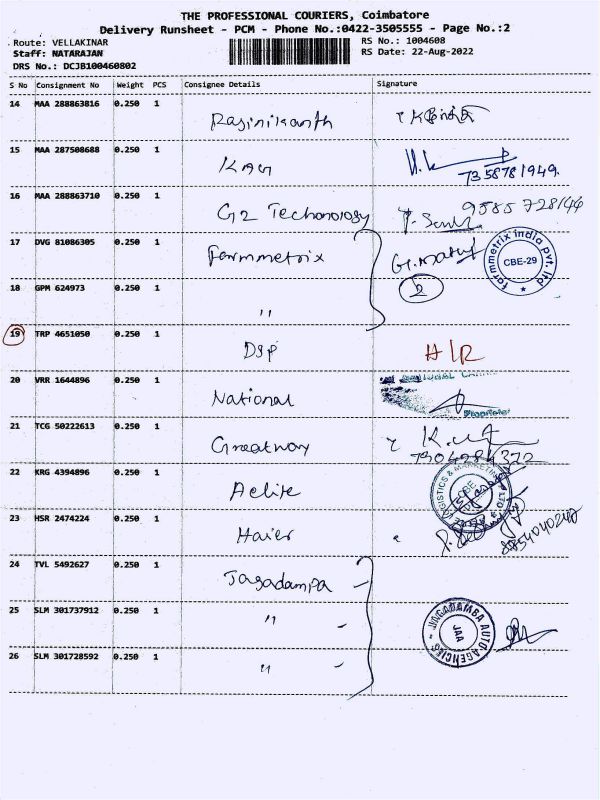 THE PROFESSIONAL COURIERS, Coimbatore
Delivery Runsheet - PCM - Phone No.:0422-3505555 - Page No.:2
Route: VELLAKINAR
RS No.: 1004608
Staff: NATARAJAN
RS Date: 22-Aug-2022
DRS No.: DCJB100460802
S No Consignment No Weight PCS Consignee Details Signature
14 MAA 288863816 0.250 1 Rajinikanth
15 MAA 287508688 0.250 1 KAG
7358781949.
16 MAA 288863710 0.250 1 G2 Technology 9585728144
17 DVG 81086305 0.250 1 Farmmetrix
farmmetrix india pvt. ltd
CBE-29
18 GPM 624973 0.250 1 " 2
19 TRP 4651050 0.250 1 DSP H/R
20 VRR 1644896 0.250 1 National
21 TCG 50222613 0.250 1 Greatway
7904284372
22 KRG 4394896 0.250 1 Aelite
LOGISTICS & MARKETING
CBE
23 HSR 2474224 0.250 1 Haier
8854040240
24 TVL 5492627 0.250 1 Jagadampa
25 SLM 301737912 0.250 1 "
JAGADAMBA AUTO AGENCIES
JAA
26 SLM 301728592 0.250 1 "